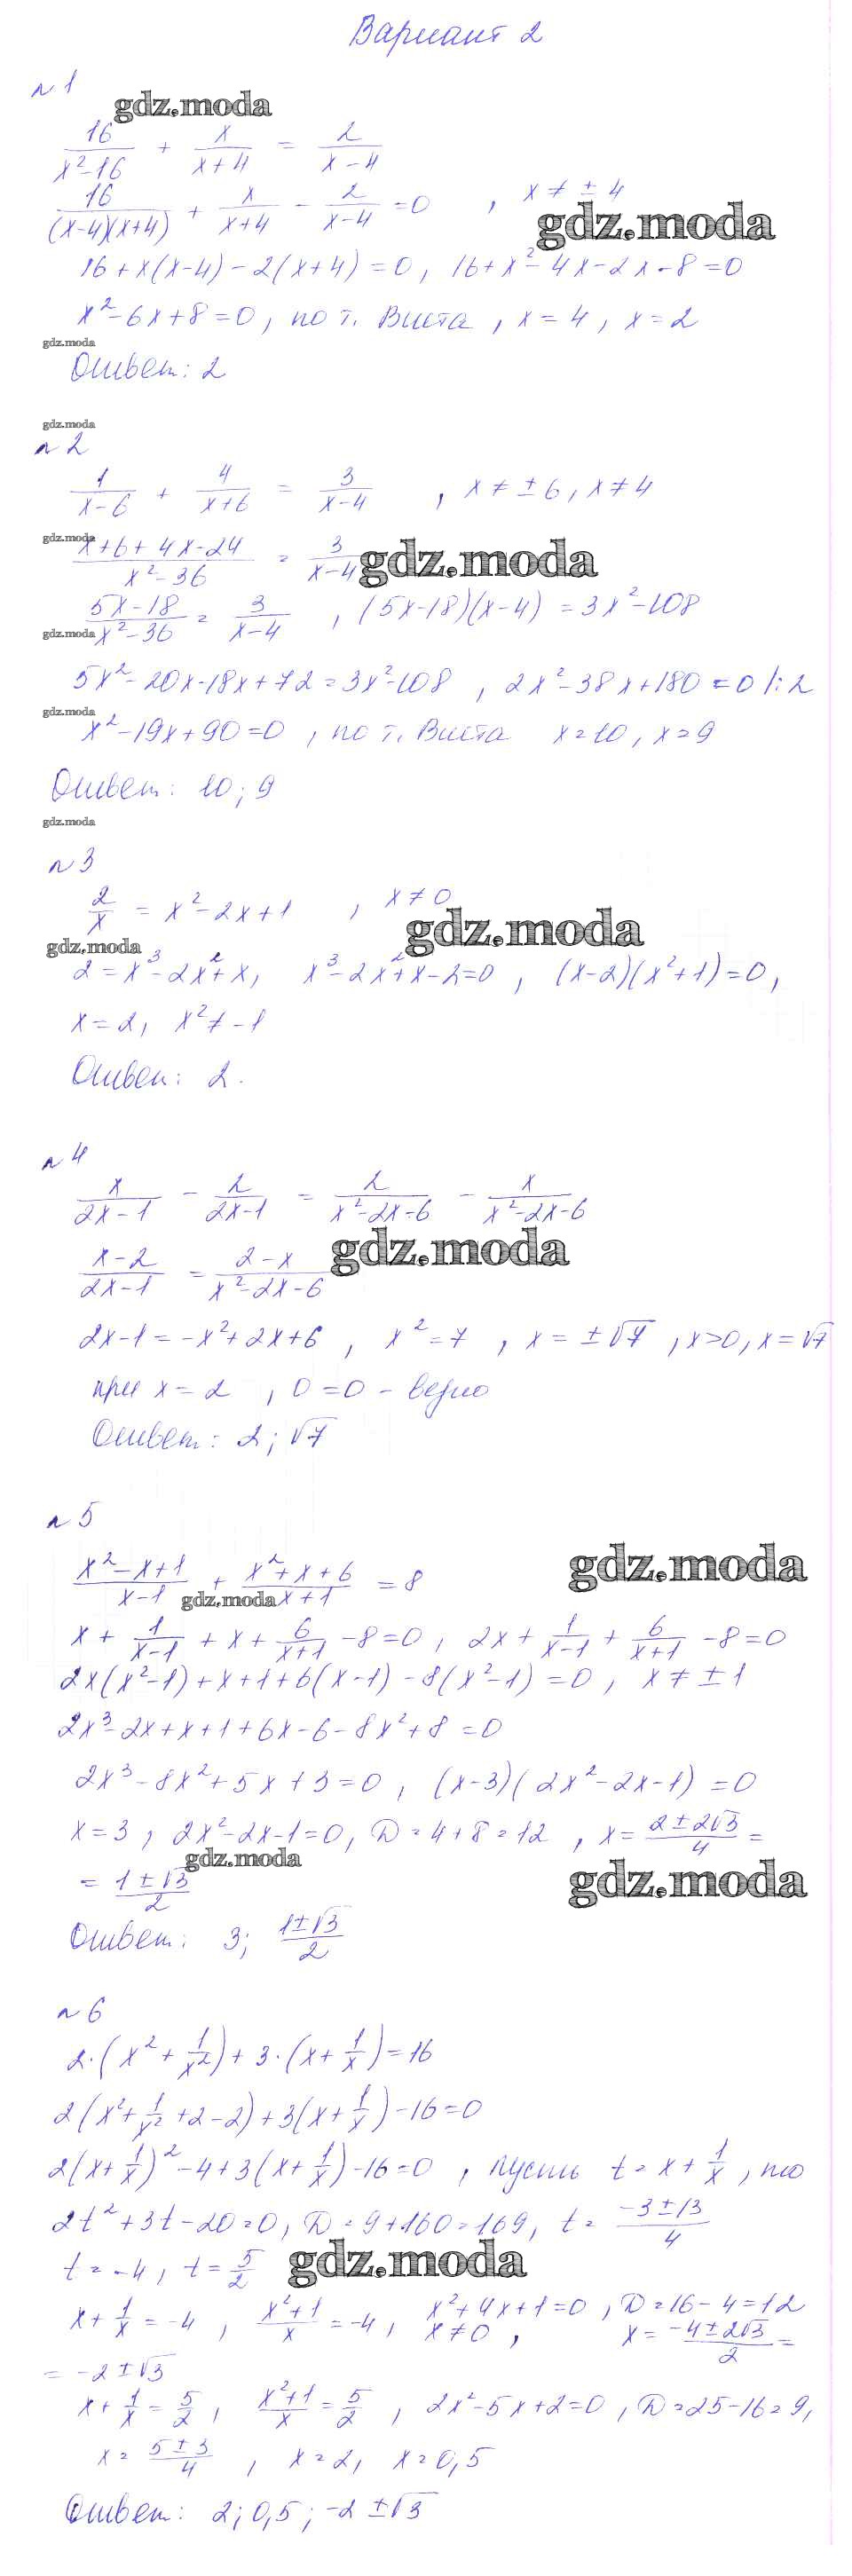 Вариант 2
№1
gdz.moda
16/(x²-16) + x/(x+4) = 2/(x-4)
16/((x-4)(x+4)) + x/(x+4) - 2/(x-4) = 0 , x ≠ ± 4
gdz.moda
16+x(x-4)-2(x+4)=0, 16+x²-4x-2x-8=0
x²-6x+8=0, по т. Виета, x=4, x=2
gdz.moda
Ответ: 2
gdz.moda
№2
1/(x-6) + 4/(x+6) = 3/(x-4) , x ≠ ±6, x ≠ 4
gdz.moda
(x+6+4x-24)/(x²-36) = 3/(x-4)
gdz.moda
(5x-18)/(x²-36) = 3/(x-4) , (5x-18)(x-4) = 3x²-108
gdz.moda
5x²-20x-18x+72=3x²-108 , 2x²-38x+180=0 /:2
gdz.moda
x²-19x+90=0 , по т. Виета x=10, x=9
Ответ: 10; 9
gdz.moda
№3
2/x = x²-2x+1 , x ≠ 0
gdz.moda
gdz.moda
2=x³-2x²+x, x³-2x²+x-2=0 , (x-2)(x²+1)=0,
x=2, x² ≠ -1
Ответ: 2.
№4
x/(2x-1) - 2/(2x-1) = 2/(x²-2x-6) - x/(x²-2x-6)
(x-2)/(2x-1) = (2-x)/(x²-2x-6)
gdz.moda
2x-1=-x²+2x+6 , x²=7 , x=±√7 , x>0, x=√7
при x=2 , 0=0 - верно
Ответ: 2; √7
№5
(x²-x+1)/(x-1) + (x²+x+6)/(x+1) = 8
gdz.moda
gdz.moda
x + 1/(x-1) + x + 6/(x+1) - 8=0, 2x + 1/(x-1) + 6/(x+1) - 8=0
2x(x²-1)+x+1+6(x-1)-8(x²-1)=0, x ≠ ±1
2x³-2x+x+1+6x-6-8x²+8=0
2x³-8x²+5x+3=0, (x-3)(2x²-2x-1)=0
x=3, 2x²-2x-1=0, D=4+8=12 , x= (2±2√3)/4 =
gdz.moda
gdz.moda
= (1±√3)/2
Ответ: 3; (1±√3)/2
№6
2·(x² + 1/x²) + 3·(x + 1/x) = 16
2(x² + 1/x² + 2-2) + 3(x + 1/x) - 16=0
2(x + 1/x)² - 4+3(x + 1/x) - 16=0 , пусть t = x + 1/x , то
2t²+3t-20=0, D=9+160=169, t = (-3±13)/4
t=-4, t= 5/2
gdz.moda
x + 1/x = -4 , (x²+1)/x = -4, x²+4x+1=0 , D=16-4=12
x ≠ 0 , x= (-4±2√3)/2 =
= -2±√3
x + 1/x = 5/2 , (x²+1)/x = 5/2 , 2x²-5x+2=0 , D=25-16=9,
x = (5±3)/4 , x=2, x=0,5
Ответ: 2; 0,5; -2±√3